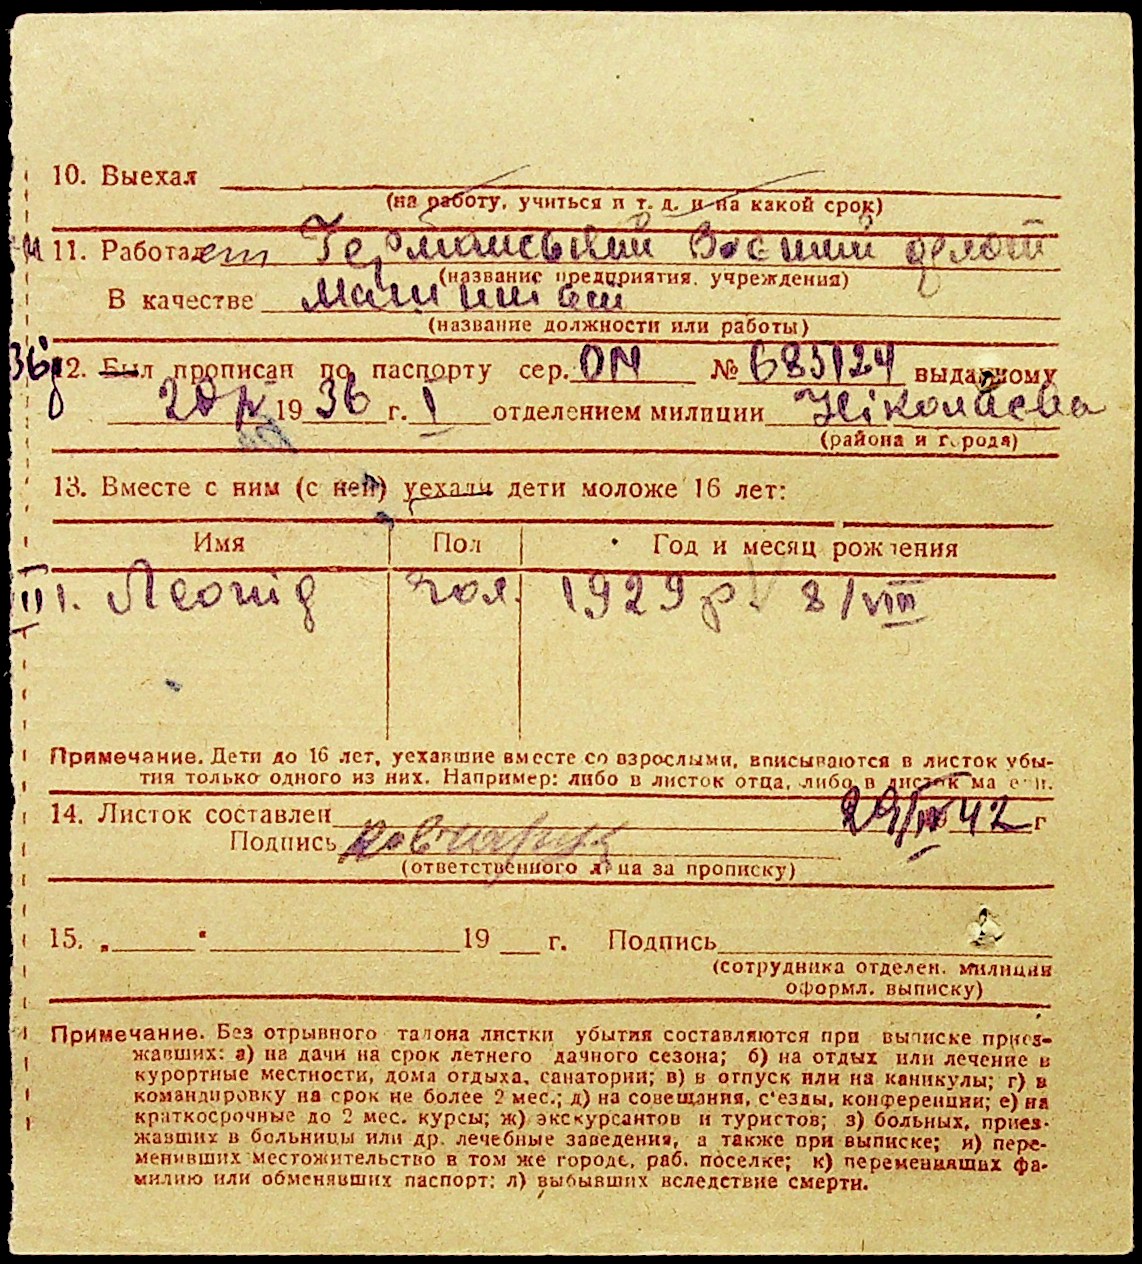 10. Выехал
(на работу, учиться и т. д. и на какой срок)
11. Работает Германський Воєний флот
(название предприятия, учреждения)
В качестве Машиніст
(название должности или работы)
12. Был прописан по паспорту сер. ОМ № 683124 выданному
1936 г. I отделением милиции Ніколаєва
(района и города)
13. Вместе с ним (с ней) уехали дети моложе 16 лет:
Имя Пол Год и месяц рождения
1. Леонід чол. 1929 р. 8/VIII
Примечание. Дети до 16 лет, уехавшие вместе со взрослыми, вписываются в листок убы-
тия только одного из них. Например: либо в листок отца, либо в листок матери.
14. Листок составлен 42 г
Подпись
(ответственного лица за прописку)
15. „ “ 19 г. Подпись
(сотрудника отделен. милиции
оформл. выписку)
Примечание. Без отрывного талона листки убытия составляются при выписке приез-
жавших: а) на дачи на срок летнего дачного сезона; б) на отдых или лечение в
курортные местности, дома отдыха, санатории; в) в отпуск или на каникулы; г) в
командировку на срок не более 2 мес.; д) на совещания, с'езды, конференции; е) на
краткосрочные до 2 мес. курсы; ж) экскурсантов и туристов; з) больных, приез-
жавших в больницы или др. лечебные заведения, а также при выписке; и) пере-
менивших местожительство в том же городе, раб. поселке; к) переменивших фа-
милию или обменявших паспорт; л) выбывших вследствие смерти.